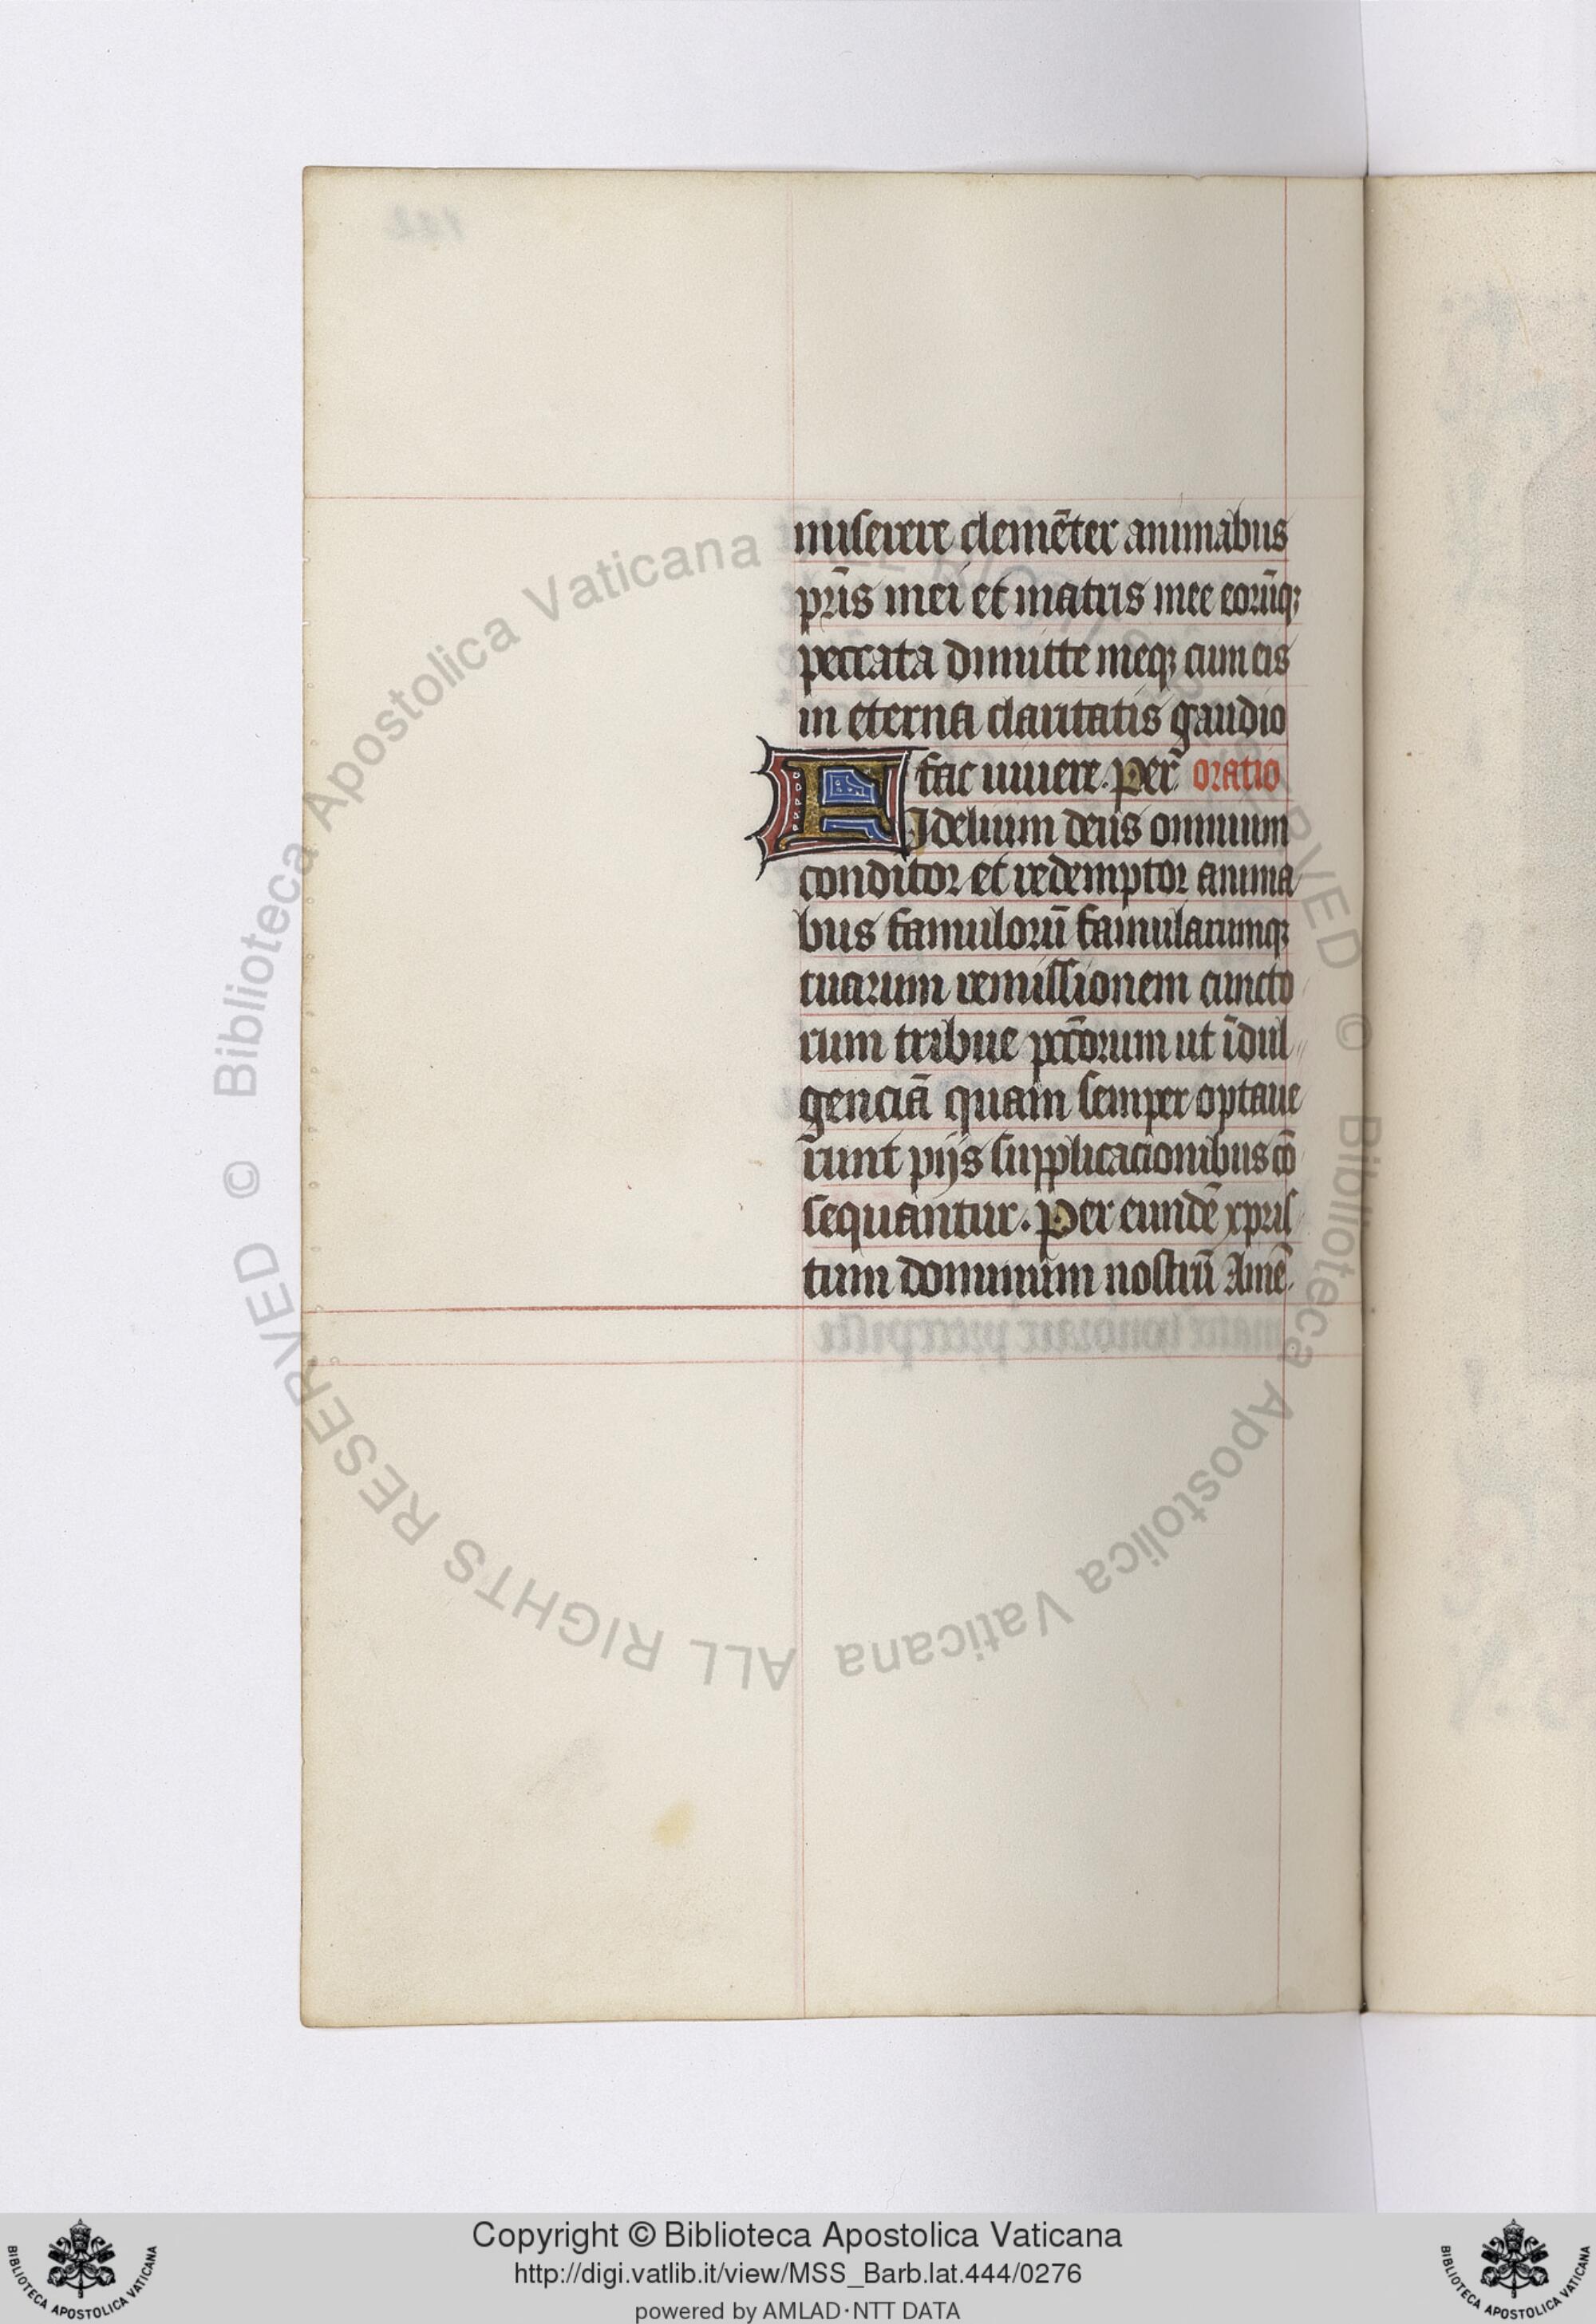 miserere clemēter animabus
pr̄is mei et matris mee eorūq;
peccata dimitte meq; cum eis
in eterna claritatis gaudio
fac uiuere. Per̄ oratio
Fidelium deus omnium
conditor et redemptor anima
bus famulorū famularumq;
tuarum remissionem cuncto
rum tribue pccōrum ut īdul
genciā quam semper optaue
runt pijs supplicacionibus cō
sequantur. Per eundē xpris
tum dominum nostrū Amē.
Biblioteca Apostolica Vaticana ALL RIGHTS RESERVED ©
Biblioteca Apostolica Vaticana ALL RIGHTS RESERVED ©
Copyright © Biblioteca Apostolica Vaticana
http://digi.vatlib.it/view/MSS_Barb.lat.444/0276
powered by AMLAD·NTT DATA
BIBLIOTECA APOSTOLICA VATICANA
BIBLIOTECA APOSTOLICA VATICANA